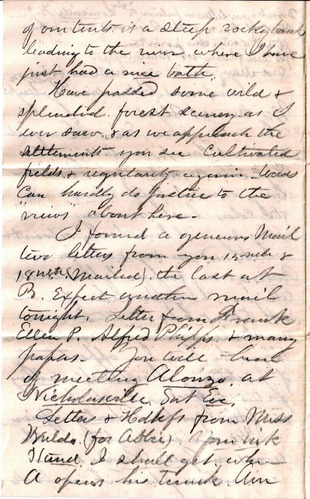 of our tents is a steep rocky bank
leading to the river where I have
just had a nice bath.
Have passed some wild &
splendid forest scenery as I
ever saw. & as we approach the
settlements you see cultivated
fields & regularity again. Words
can hardly do justice to the
"views" about here.
I found a generous Mail
two letters from you 15 &
18 Mailed). the last at
B. Expect another mail
tonight. Letter from Frank
Ellen P. Alfred Phipps & many
papers. You will hear
of meeting Alonzo. at
Nicholasville Sat Eve.
Letters & Hdkfs from Miss
(for Abbie). from ink
Stand. I shall get when
A opens his trunk. Am